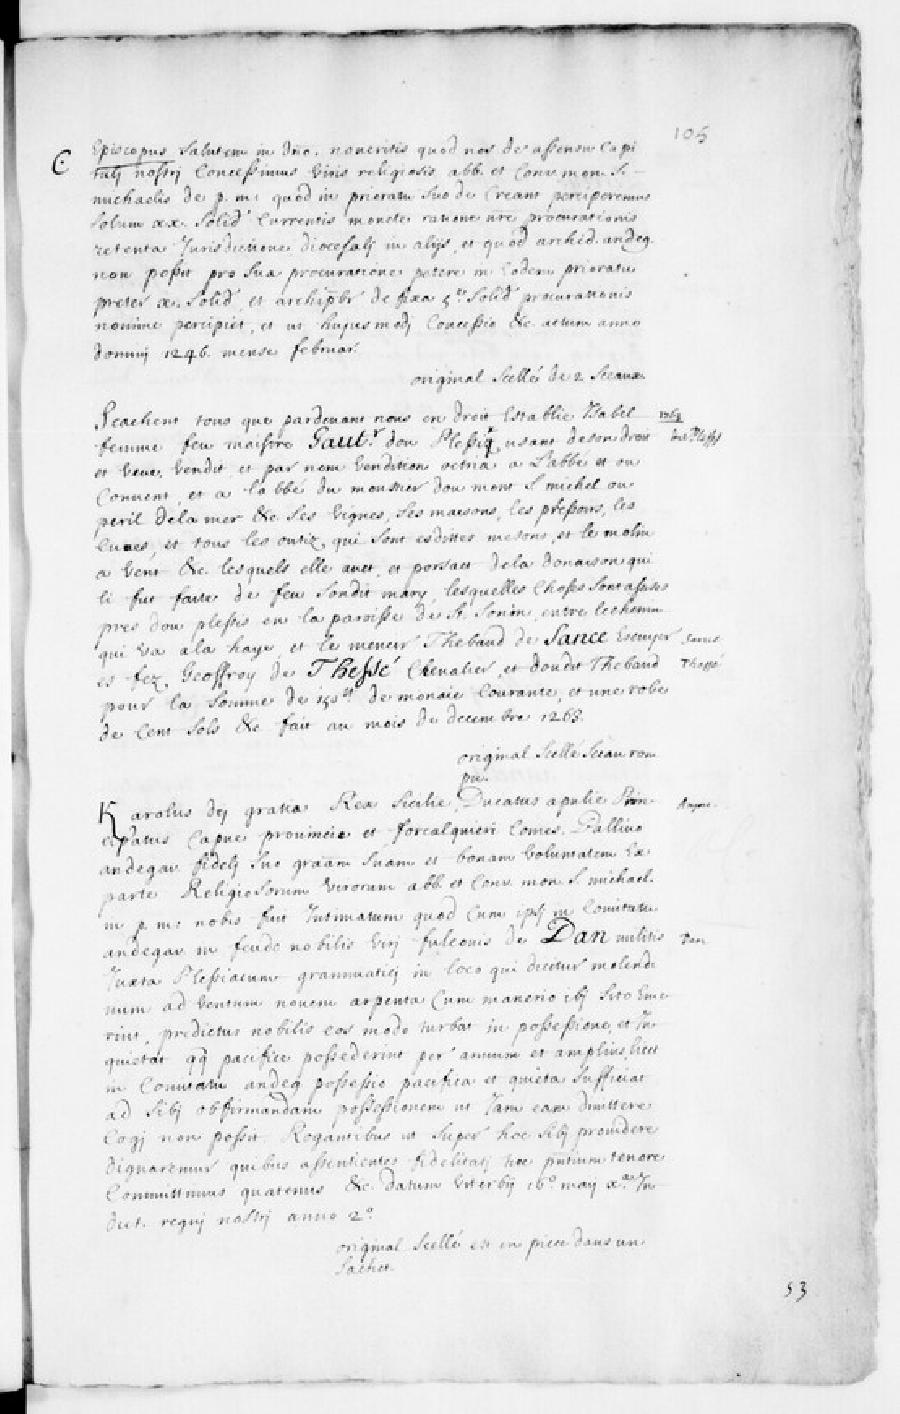 105
C Episcopus salutem in dno. noveritis quod nos de assensu Capi
tulj nostrj Concessimus viris religiosis abb. et Conv. mon. S.
michaelis de p. m. quod in prioratu suo de Creant perciperemus
solum xx. solid Currentis monete ratione nre procurationis
retenta Jurisdictione diocesalj in alijs, et quod archid. andeg.
non possit pro sua procuratione petere in eodem prioratu
preter x. solid, et archipbr de 5 solid procurationis
nomine percipiet, et ut hujusmodj Concessio &c. actum anno
dominij 1246. mense februar.
original scellé de 2 sceaux.
Scachent tous que pardevant nous en droit Establie Isabel
femme feu maistre Gautr dou Plessis, usant de son droit
et veue, vendit et par nom vendition octria a L'abbé et ou
Convent, et a labbé du monstier dou mont S. michel ou
peril de la mer &c. ses vignes, ses maisons, les pressors, les
cuves, et tous les outiz, qui sont esdittes mesons, et le molin
a vent &c. lesquels elle avet, et porsaet de la donaison qui
li fut faite de feu sondit mary, lesquelles Choses sont assises
pres dou plessis en la paroisse de St. Sonin, entre le chemin
qui va a la haye, et le meneir Thebaud de Sance Escuyer Sance
es fez, Geoffroy de Thessé Chevalier, et doudit Thebaud Thessé
pour la somme de de monoie Courante, et une robe
de Cent sols &c. fait au mois de decembre 1263.
original scellé sceau rom
pu.
Karolus dej gratia Rex Sicilie, Ducatus apulie Prin-
cipatus Capue provincie et forcalquierj Comes. Ballivo
andegav. fidelj suo graam suam et bonam voluntatem Ex
parte Religiosorum virorum abb. et Conv. mon. S. michael.
in p. m. nobis fuit Intimatum quod Cum ipsj in Comitatu
andegav. in feudo nobilis virj fulconis de Dan militis Dan
Juxta Plessiacum grammaticj in loco qui dicitur molendi
num ad ventum novem arpenta Cum manerio ibj sito Eme-
rint, predictus nobilis eos modo turbat in possessione, et In-
quietat qq pacifice possederint per annum et amplius, licet
in Comitatu andeg. possessio pacifica et quieta sufficiat
ad sibj obfirmandam possessionem ut Jam eam dimittere
Cogj non possit. Rogantibus ut super hoc sibj providere
dignaremur quibus assentientes fidelitatj tue pntium tenore
Committimus quatenus &c. datum Viterbij 16o may xa. In-
dict. regnj nostrj anno 2o.
original scellé est en piece dans un
sachet.
53